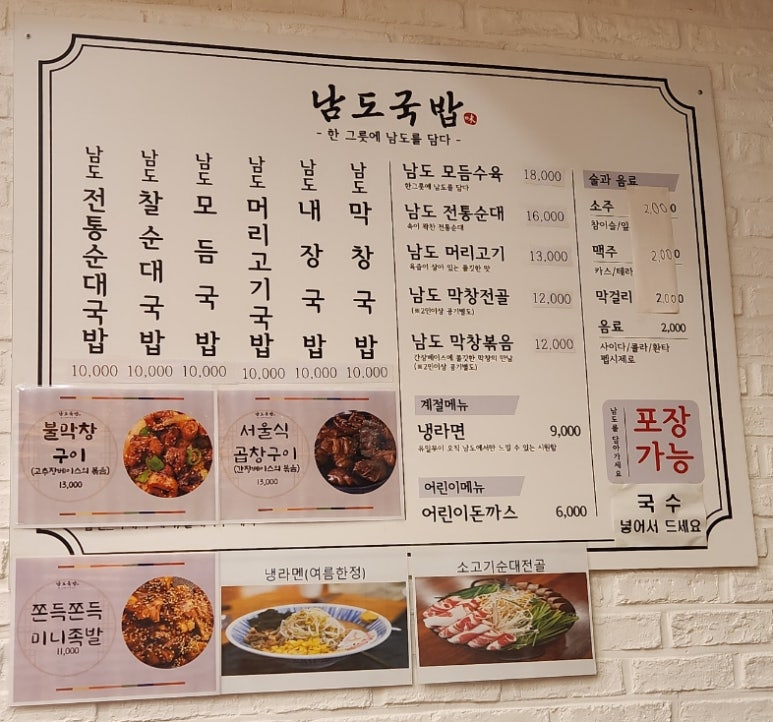 남도국밥
味
- 한 그릇에 남도를 담다 -
남도 전통순대국밥
10,000
남도 찰순대국밥
10,000
남도 모듬국밥
10,000
남도 머리고기국밥
10,000
남도 내장국밥
10,000
남도 막창국밥
10,000
남도 모듬수육 18,000
한그릇에 남도를 담다
남도 전통순대 16,000
속이 꽉찬 전통순대
남도 머리고기 13,000
육즙이 살아 있는 쫄깃한 맛
남도 막창전골 12,000
(※2인이상 공기별도)
남도 막창볶음 12,000
간장베이스에 쫄깃한 막창의 만남
(※2인이상 공기별도)
계절메뉴
냉라면 9,000
유일무이 오직 남도에서만 느낄 수 있는 시원함
어린이메뉴
어린이돈까스 6,000
술과 음료
소주 2,000
참이슬/잎
맥주 2,000
카스/테라
막걸리 2,000
음료 2,000
사이다/콜라/환타
펩시제로
남도를 담아가세요
포장
가능
국수
넣어서 드세요
남도국밥
불막창
구이
(고추장베이스의 볶음)
13,000
남도국밥
서울식
곱창구이
(간장베이스의 볶음)
13,000
남도국밥
쫀득쫀득
미니족발
11,000
냉라멘(여름한정)
소고기순대전골